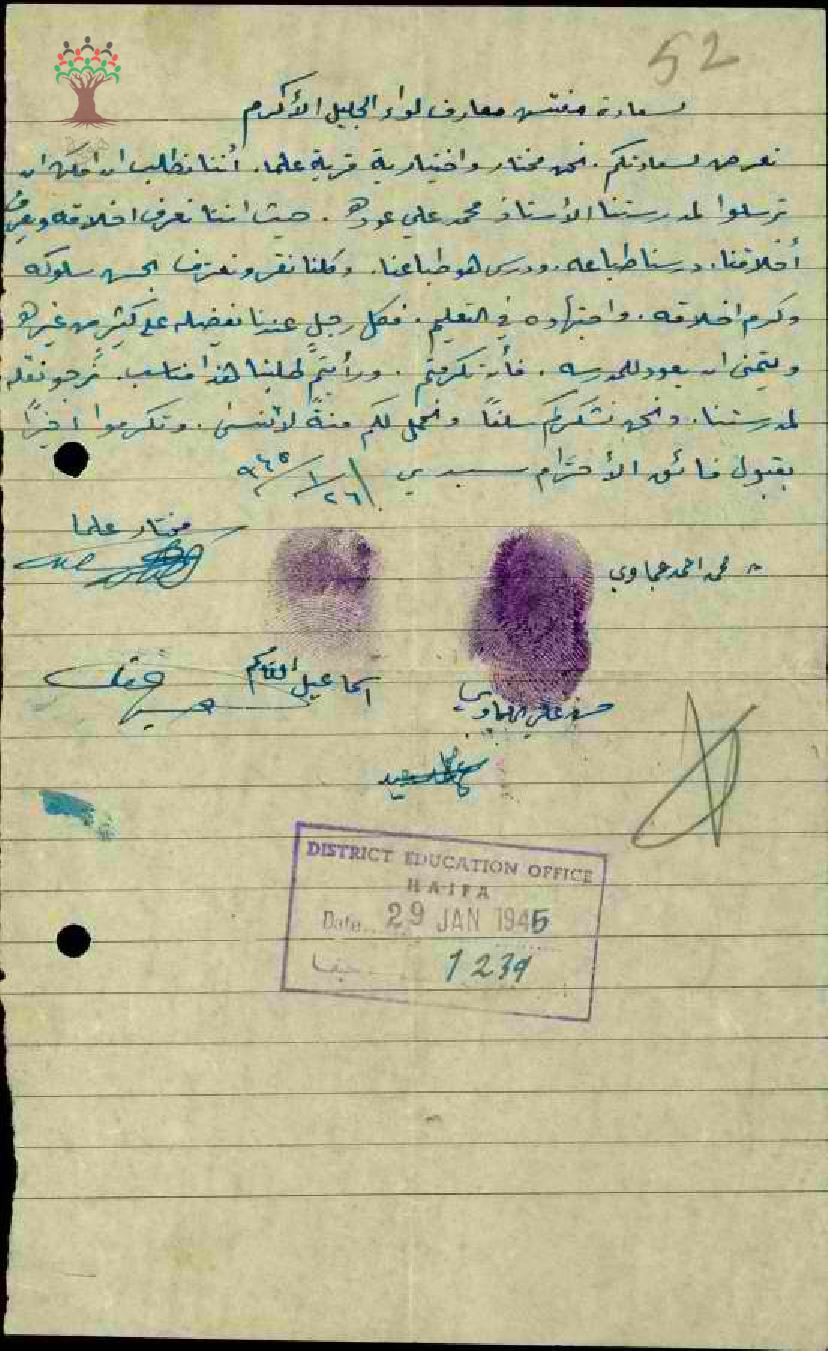 52
لسعادة مفتش معارف لواء الجليل الأكرم
نعرض لسعادتكم. نحن مختار واختيارية قرية علما. أننا نطلب ان امكن ان
ترسلوا لمدرستنا الأستاذ محمد علي عوده. حيث اننا نعرف اخلاقه ويعرف
أخلاقنا. درسنا طباعه. ودرس هو طباعنا. وكلنا نقر ونعترف بحسن سلوكه
وكرم اخلاقه. واجتهاده في التعليم. فكل رجل عندنا يفضله على كثير من غيره
ويتمنى ان يعود للمدرسه. فأن تكرمتم. ورأيتم طلبنا هذا مناسب. نرجو نقله
لمدرستنا. ونحن نشكركم سلفاً ونحمل لكم منةً لا تنسى. وتكرموا اخيراً
بقبول فائق الأحترام سيدي ٢٦/١/٩٤٥
مختار علما
محمد احمد
اسماعيل
حسن علي
DISTRICT EDUCATION OFFICE
HAIFA
Date 29 JAN 1945
حيفا 1239